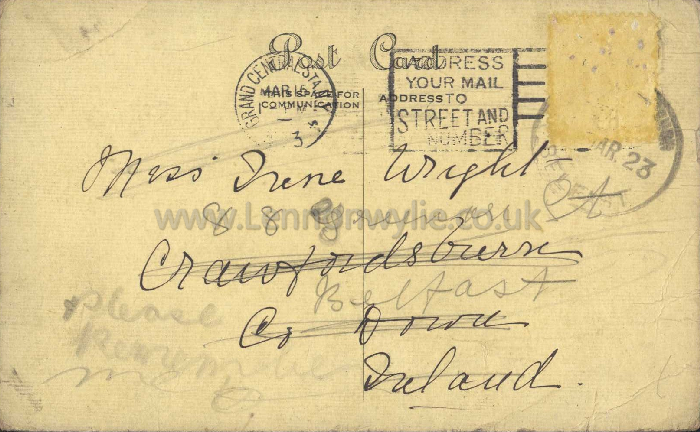 Post Card
GRAND CENTRAL STA. N.Y.
MAR 15
3
THIS SPACE FOR
COMMUNICATION
ADDRESS TO
ADDRESS
YOUR MAIL
TO
STREET AND
NUMBER
MAR. 23
BELFAST
Miss Irene Wright
www.Lennonwylie.co.uk
88
Crawfordsburn
Belfast
Please
Co Down
Ireland.